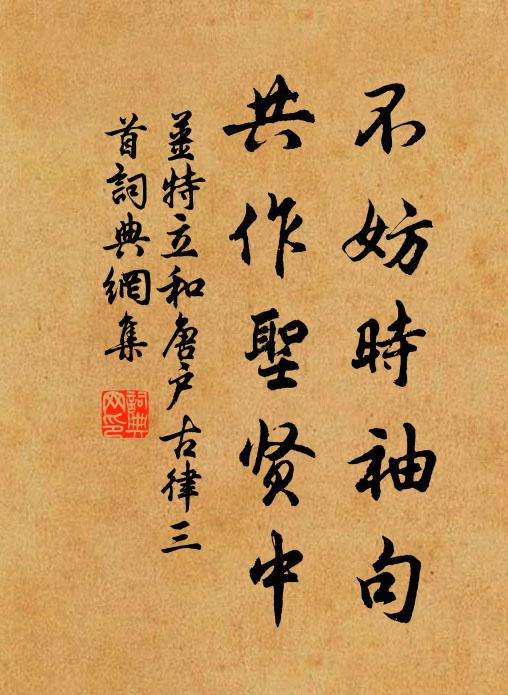 不妨時袖句
共作聖贤中
薑特立和唐户古律三
首詞典網集
詞典
网印